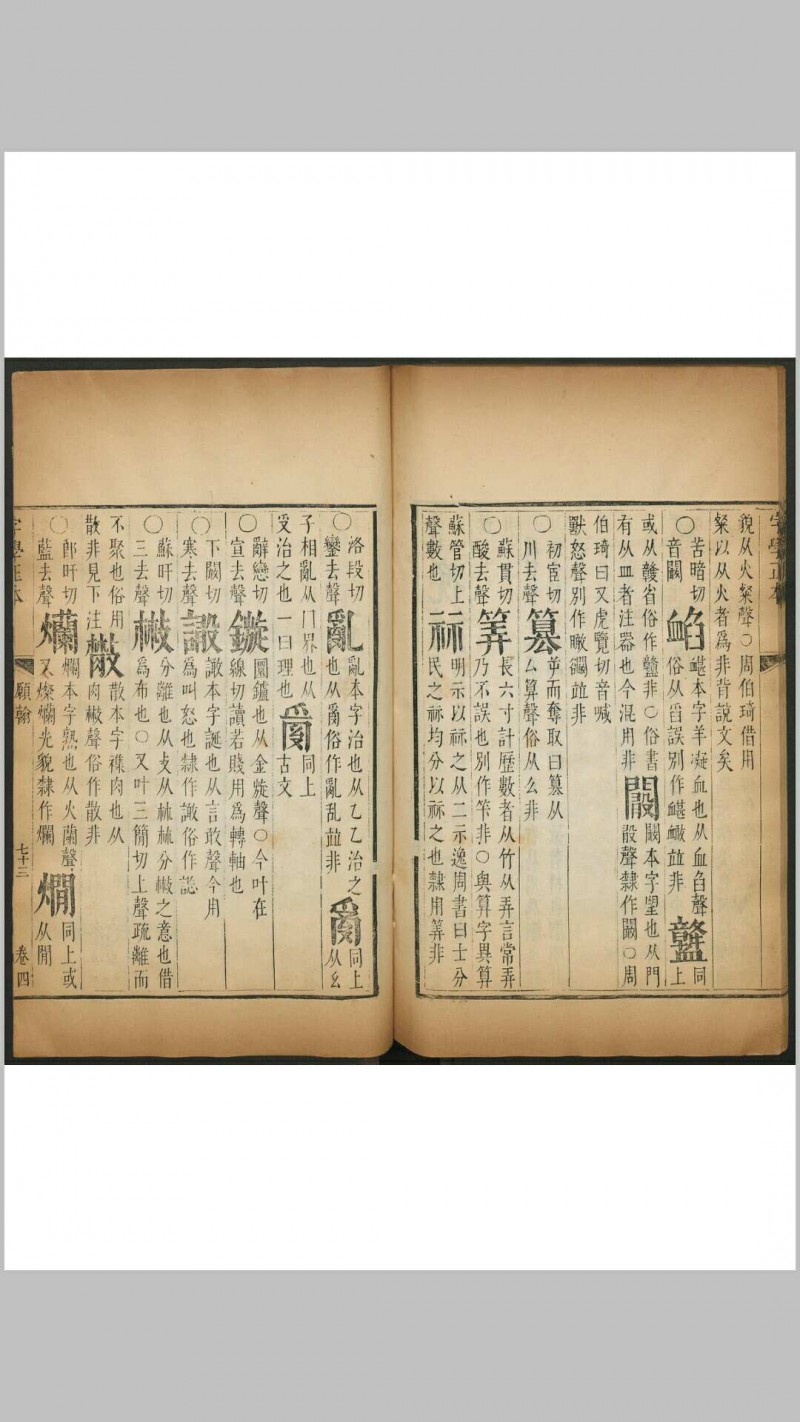 貌从火粲聲○周伯琦借用
粲以从火者爲非背說文矣
○苦暗切
音闞
䘓
䘓本字羊凝血也从血臽聲
俗从舀誤別作衉𧗄竝非
䘔
同
上
或从贛省俗作𥃔非○俗書
有从皿者注器也今混用非
闞本字望也从門
𣪊聲隸作闞○周
伯琦曰又虎覽切音喊
獸怒聲別作瞰㘚竝非
○初宦切
川去聲
篡
屰而奪取曰篡从
厶算聲俗从么非
○蘇貫切
酸去聲
筭
長六寸計歷數者从竹从弄言常弄
乃不誤也別作笇非○與算字異算
蘇管切上
聲數也
祘
明示以祘之从二示逸周書曰士分
民之祘均分以祘之也隸用筭非
字學正本
○洛段切
鑾去聲
亂
亂本字治也从乙乙治之
也从𤔔俗作亂乱竝非
𤔔
同上
从幺
子相亂从冂界也从
𠬪治之也一曰理也
同上
古文
○辭戀切
宣去聲
鏇
圜鑪也从金旋聲○今叶在
線切讀若賤用爲轉軸也
○下闞切
寒去聲
譀
譀本字誕也从言敢聲今用
爲叫怒也隸作譀俗作𧧸
○蘇旰切
三去聲
㪔
分離也从攴从𣏟𣏟分㪔之意也借
爲布也○又叶三簡切上聲疏離而
不聚也俗用
散非見下注
散
散本字襍肉也从
肉㪔聲俗作散非
○郎旰切
藍去聲
爛
爛本字熟也从火蘭聲
又燦爛光貌隸作爛
燗
同上或
从閒
字學正本
願翰
七十三
卷四